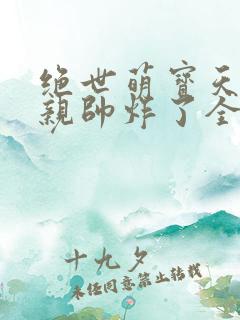 绝世萌寶天
親帥炸了全
十九夕
未经同意禁止转载